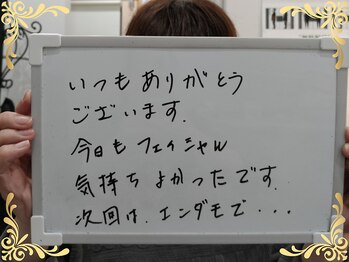 いつもありがとう
ございます.
今日もフェイシャル
気持ちよかったです.
次回は、エンダモで・・・